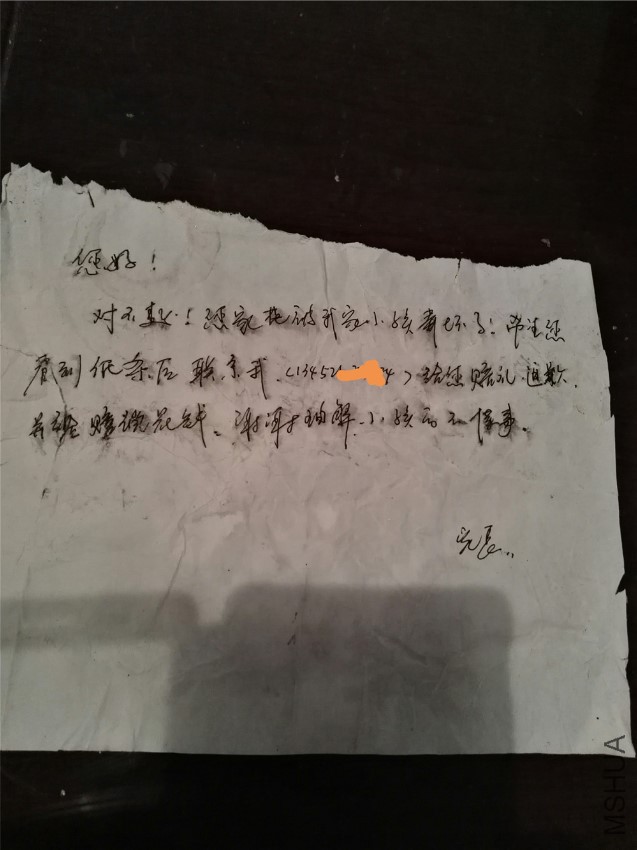 您好!
对不起!您家花被我家小孩弄坏了!希望您
看到纸条后联系我.(13452)给您赔礼.道歉.
并 赔偿花钱。谢谢理解.小孩 不懂事。
家长..
MSHUA